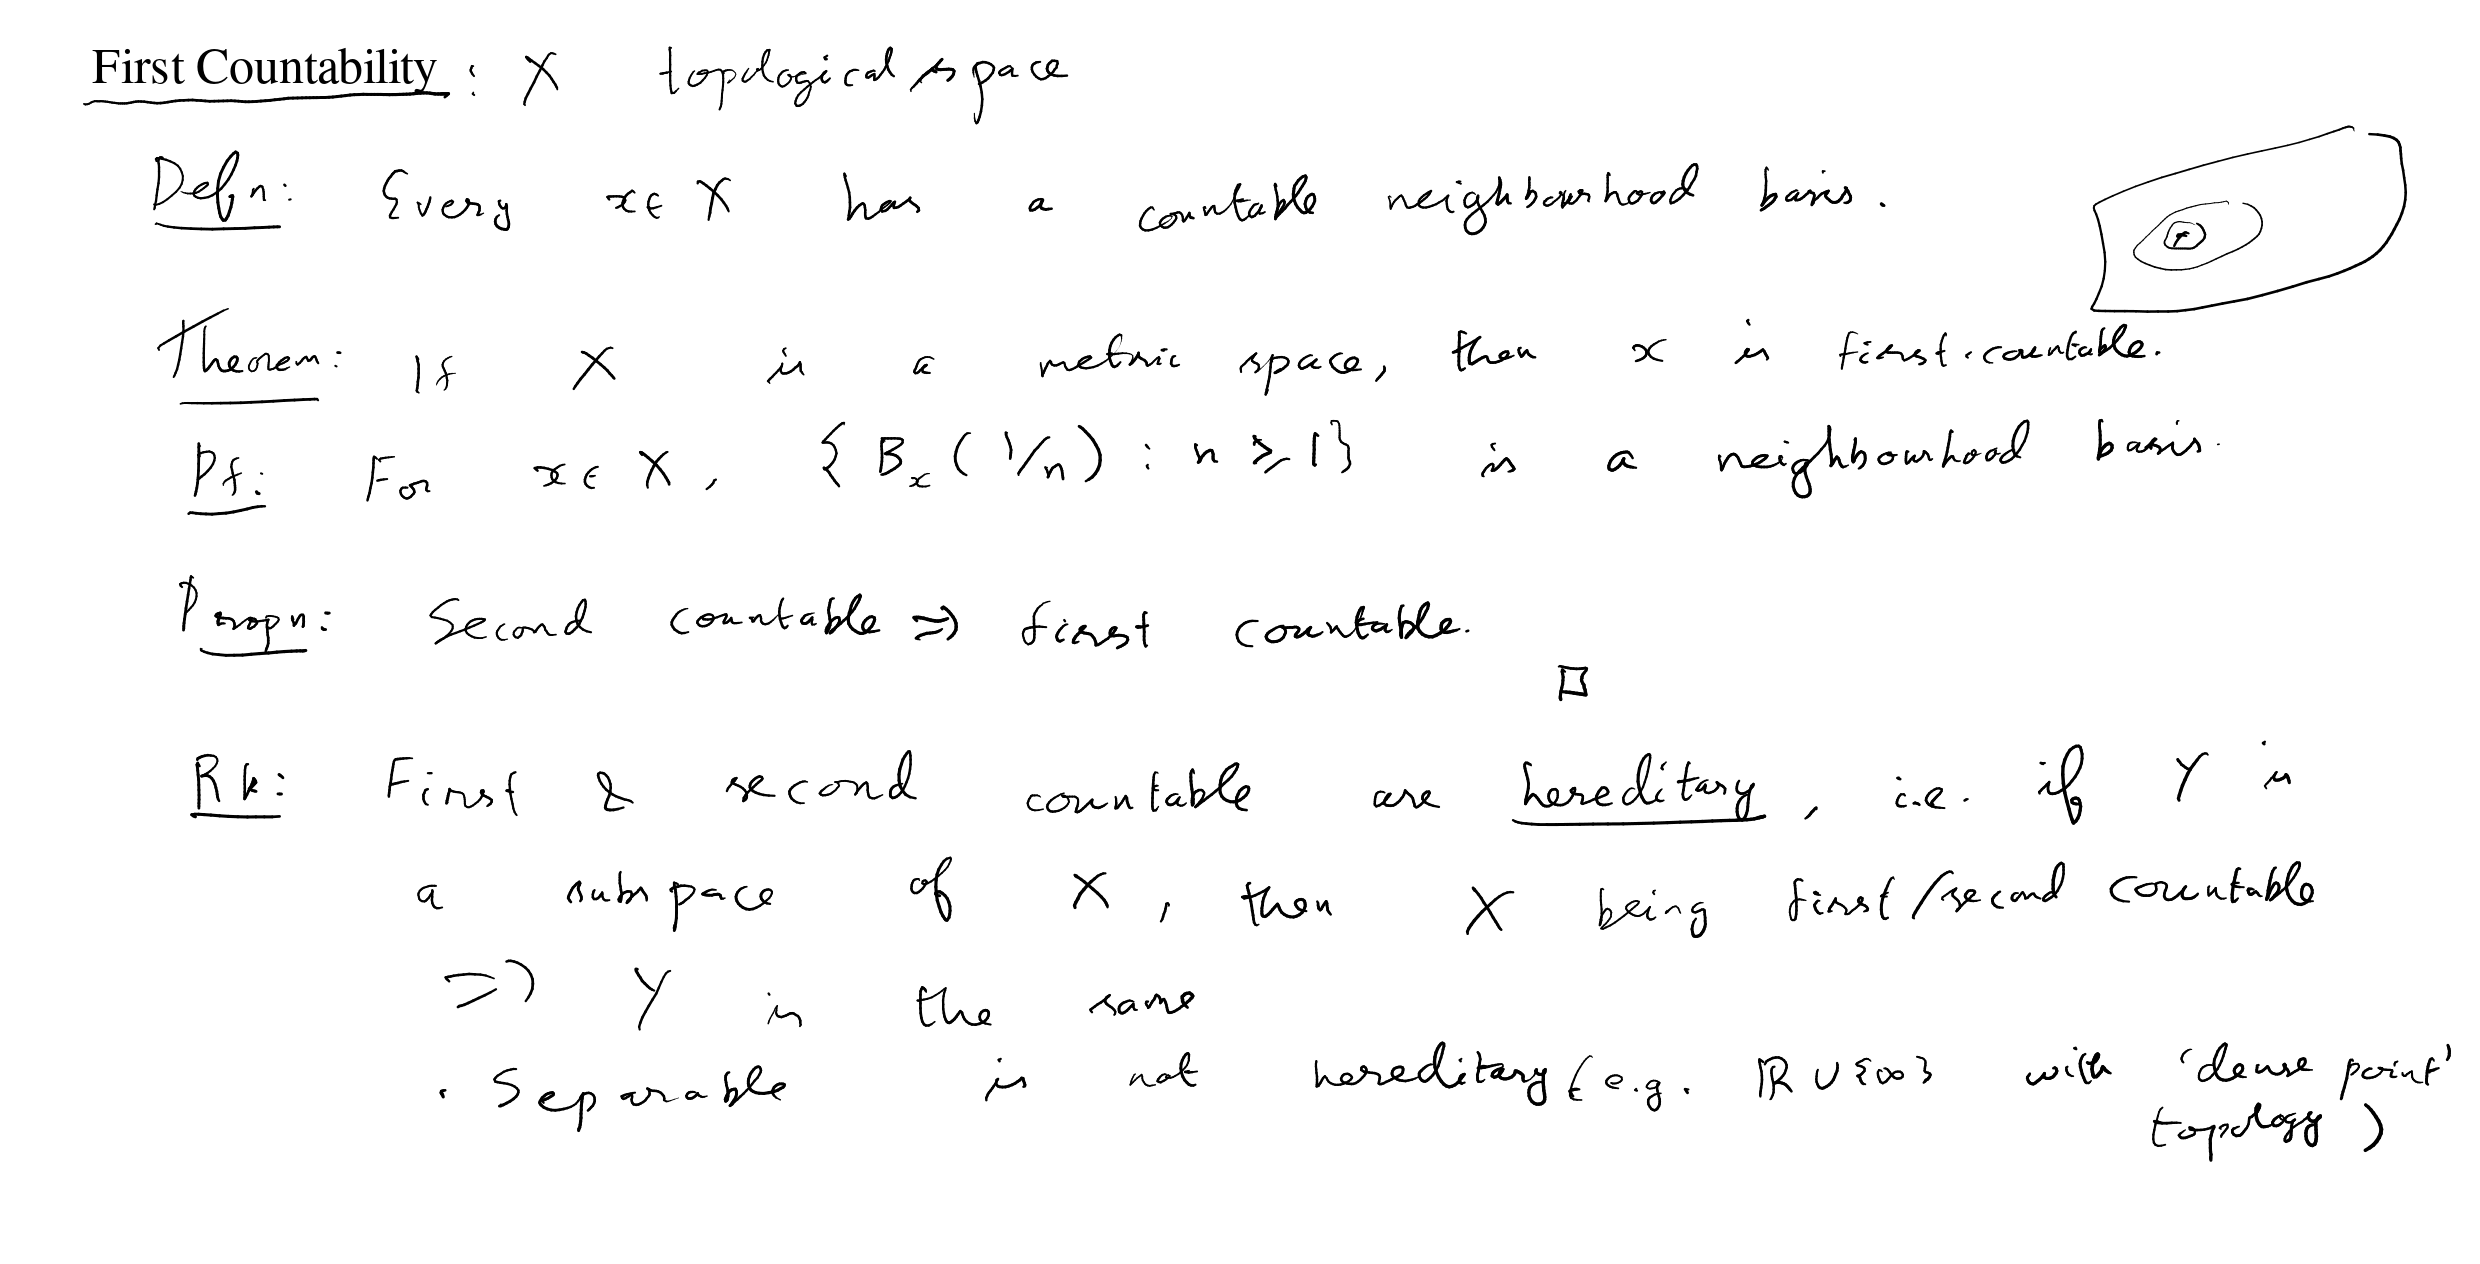 First Countability : X topological space
Defn: Every x ∈ X has a countable neighbourhood basis.
Theorem: If X is a metric space, then x is first-countable.
Pf: For x ∈ X, { B_x ( 1/n ) : n ⩾ 1 } is a neighbourhood basis.
Propn: Second countable => first countable.
□
Rk: First & second countable are hereditary, i.e. if Y is
a subspace of X, then X being first/second countable
=> Y is the same
. Separable is not hereditary (e.g. ℝ ∪ {∞} with 'dense point'
topology )